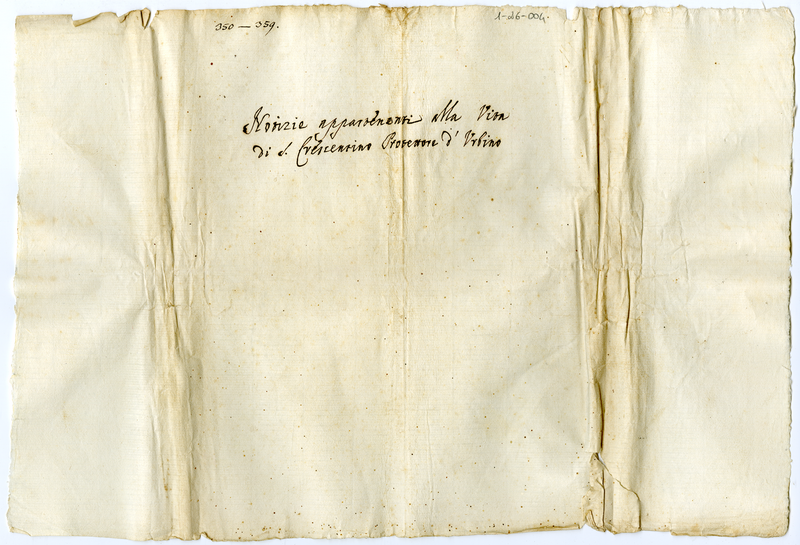 350 — 359.
1-26-004.
Notizie appartenenti alla Vita
di S. Crescentino Protettore d' Urbino